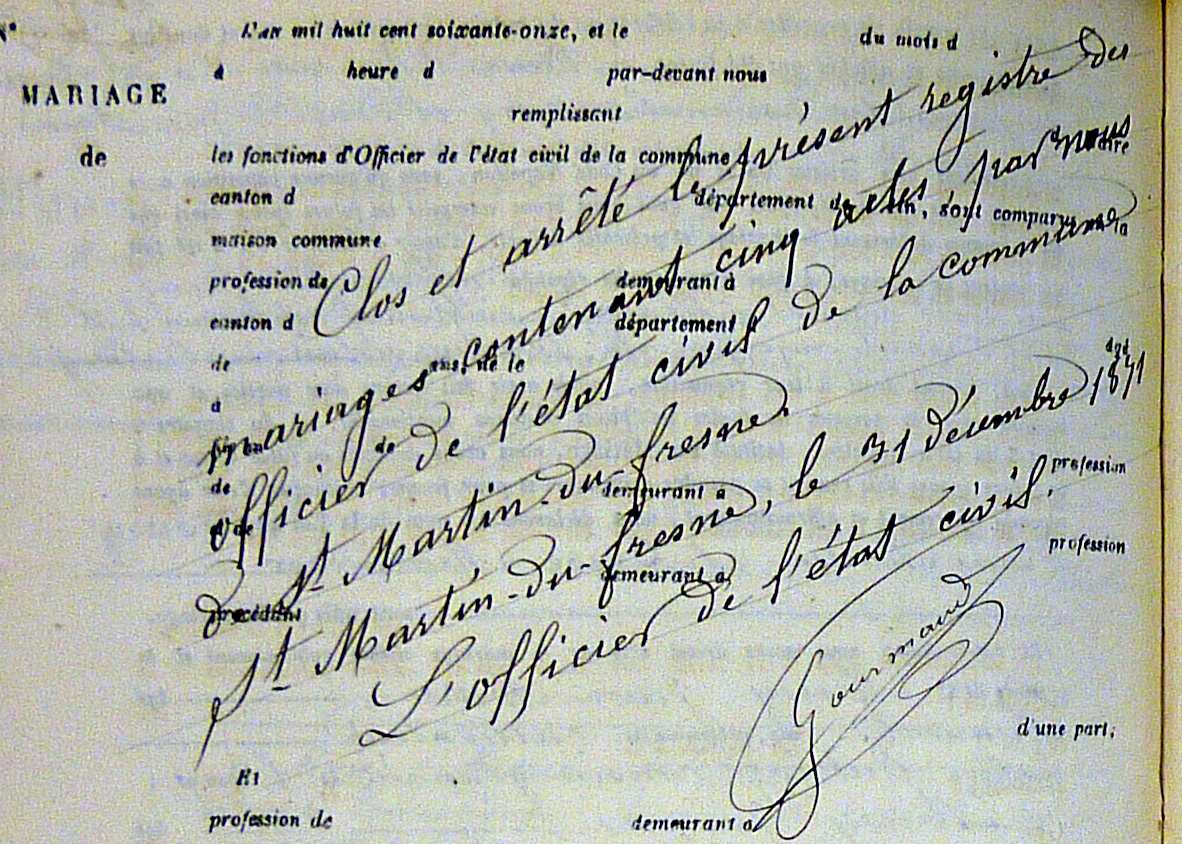 N°
L'an mil huit cent soixante-onze, et le du mois d
à heure d par-devant nous
MARIAGE
remplissant
de
les fonctions d'Officier de l'état civil de la commune
canton d département de l'Ain, sont comparus
maison commune
profession de demeurant à
canton d département d
de ans, né le
à
fils de
de demeurant à profession
et de
demeurant à profession
procédant
Clos et arrêté le présent registre des
mariages, contenant cinq actes par nous
officier de l'état civil de la commune
de St Martin-du-fresne.
St Martin-du-fresne, le 31 décembre 1871
L'officier de l'état civil.
Gourmand
d'une part;
Et
profession de demeurant à